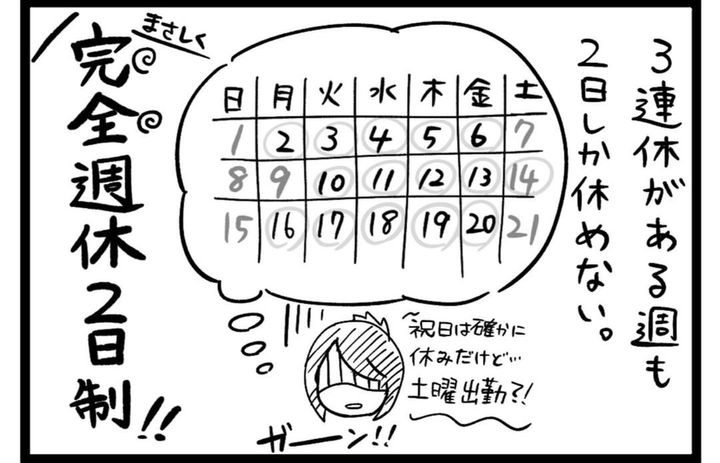 3連休がある週も
2日しか休めない。
日 月 火 水 木 金 土
1 2 3 4 5 6 7
8 9 10 11 12 13 14
15 16 17 18 19 20 21
祝日は確かに
休みだけど…
土曜出勤て!
ガーン!!
まさしく
完全週休2日制!!